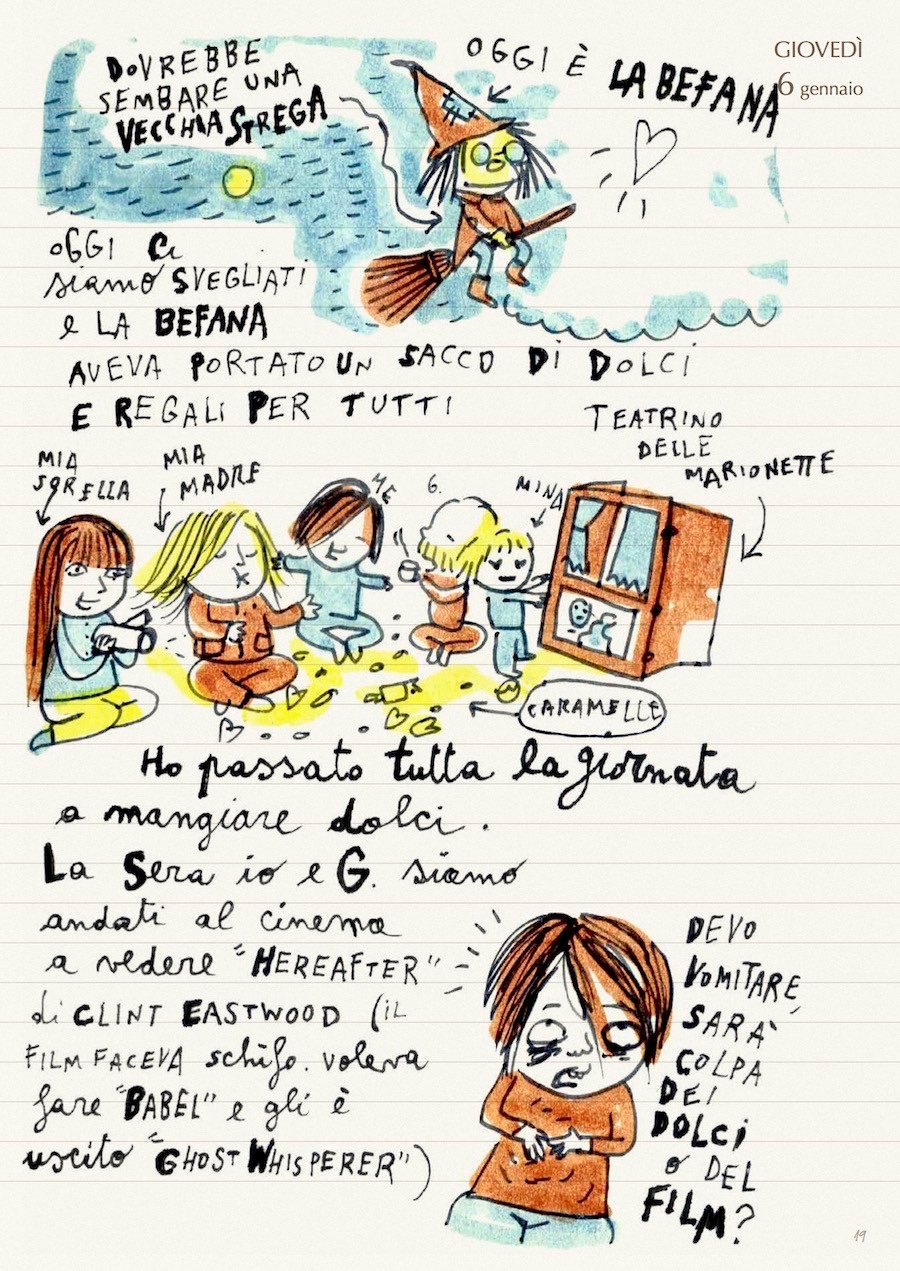 GIOVEDÌ
6 gennaio
OGGI È LA BEFANA
DOVREBBE
SEMBARE UNA
VECCHIA STREGA
OGGI Ci
siamo SVEGLIATI
e LA BEFANA
AVEVA PORTATO UN SACCO DI DOLCI
E REGALi PER TUTTI
TEATRINO
DELLE
MARIONETTE
MIA
SORELLA
MIA
MADRE
ME
G.
MINA
CARAMELLE
Ho passato tutta la giornata
a mangiare dolci.
La Sera io e G. siamo
andati al cinema
a vedere "HEREAFTER"
di CLINT EASTWOOD (iL
FILM FACEVA schifo. voleva
fare "BABEL" e gli è
uscito "GHOST WHISPERER")
DEVO
VOMITARE
SARA'
COLPA
DEI
DOLCi
o DEL
FILM?
19